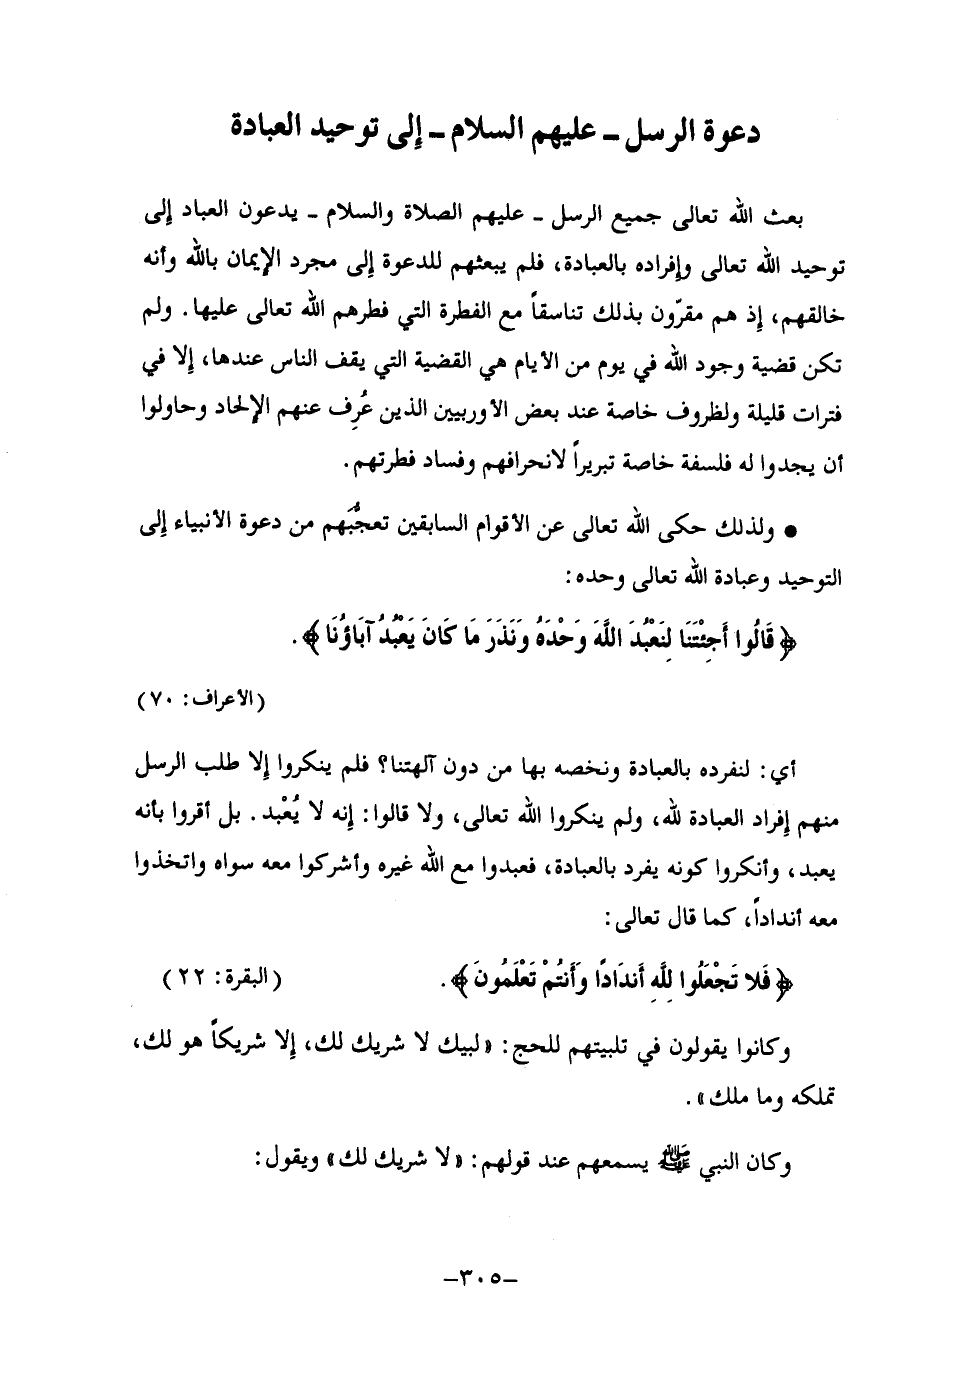 دعوة الرسل ـ عليهم السلام ـ إلى توحيد العبادة
بعث الله تعالى جميع الرسل ـ عليهم الصلاة والسلام ـ يدعون العباد إلى
توحيد الله تعالى وإفراده بالعبادة، فلم يبعثهم للدعوة إلى مجرد الإيمان بالله وأنه
خالقهم، إذ هم مقرّون بذلك تناسقاً مع الفطرة التي فطرهم الله تعالى عليها. ولم
تكن قضية وجود الله في يوم من الأيام هي القضية التي يقف الناس عندها، إلا في
فترات قليلة ولظروف خاصة عند بعض الأوربيين الذين عُرِف عنهم الإلحاد وحاولوا
أن يجدوا له فلسفة خاصة تبريراً لانحرافهم وفساد فطرتهم.
● ولذلك حكى الله تعالى عن الأقوام السابقين تعجُّبَهم من دعوة الأنبياء إلى
التوحيد وعبادة الله تعالى وحده:
﴿قَالُوا أَجِئْتَنَا لِنَعْبُدَ اللَّهَ وَحْدَهُ وَنَذَرَ مَا كَانَ يَعْبُدُ آبَاؤُنَا﴾.
(الأعراف: ٧٠)
أي: لنفرده بالعبادة ونخصه بها من دون آلهتنا؟ فلم ينكروا إلا طلب الرسل
منهم إفراد العبادة لله، ولم ينكروا الله تعالى، ولا قالوا: إنه لا يُعْبد. بل أقروا بأنه
يعبد، وأنكروا كونه يفرد بالعبادة، فعبدوا مع الله غيره وأشركوا معه سواه واتخذوا
معه أنداداً، كما قال تعالى:
﴿فَلا تَجْعَلُوا لِلَّهِ أَندَادًا وَأَنتُمْ تَعْلَمُونَ﴾. (البقرة: ٢٢)
وكانوا يقولون في تلبيتهم للحج: «لبيك لا شريك لك، إلا شريكاً هو لك،
تملكه وما ملك».
وكان النبي ﷺ يسمعهم عند قولهم: «لا شريك لك» ويقول:
ـ٣٠٥ـ